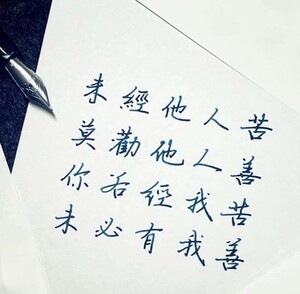 未經他人苦
莫勸他人善
你若經我苦
未必有我善